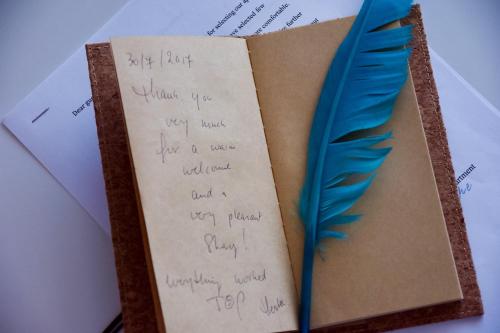 for selecting our ap
ve selected few
re comfortable.
further
Dear gu
30/7/2017
thank you
very much
for a warm
welcome
and a
very pleasant
Stay!
everything worked
TOP
artment